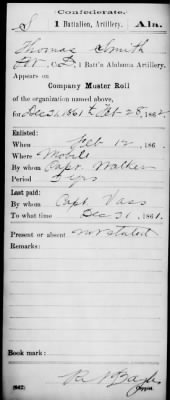 Confederate.
S 1 Battalion, Artillery. Ala.
Thomas Smith
Co. D, 1 Batt'n Alabama Artillery.
Appears on
Company Muster Roll
of the organization named above,
for Dec 31, 1861 to Feb 28, 1862.
Enlisted:
When Feb 12, 186 .
Where Mobile
By whom Capt. Walker
Period 3 yrs
Last paid:
By whom Capt Vass
To what time Dec 31, 1861.
Present or absent not stated
Remarks:
Book mark:
(642) Copyist.